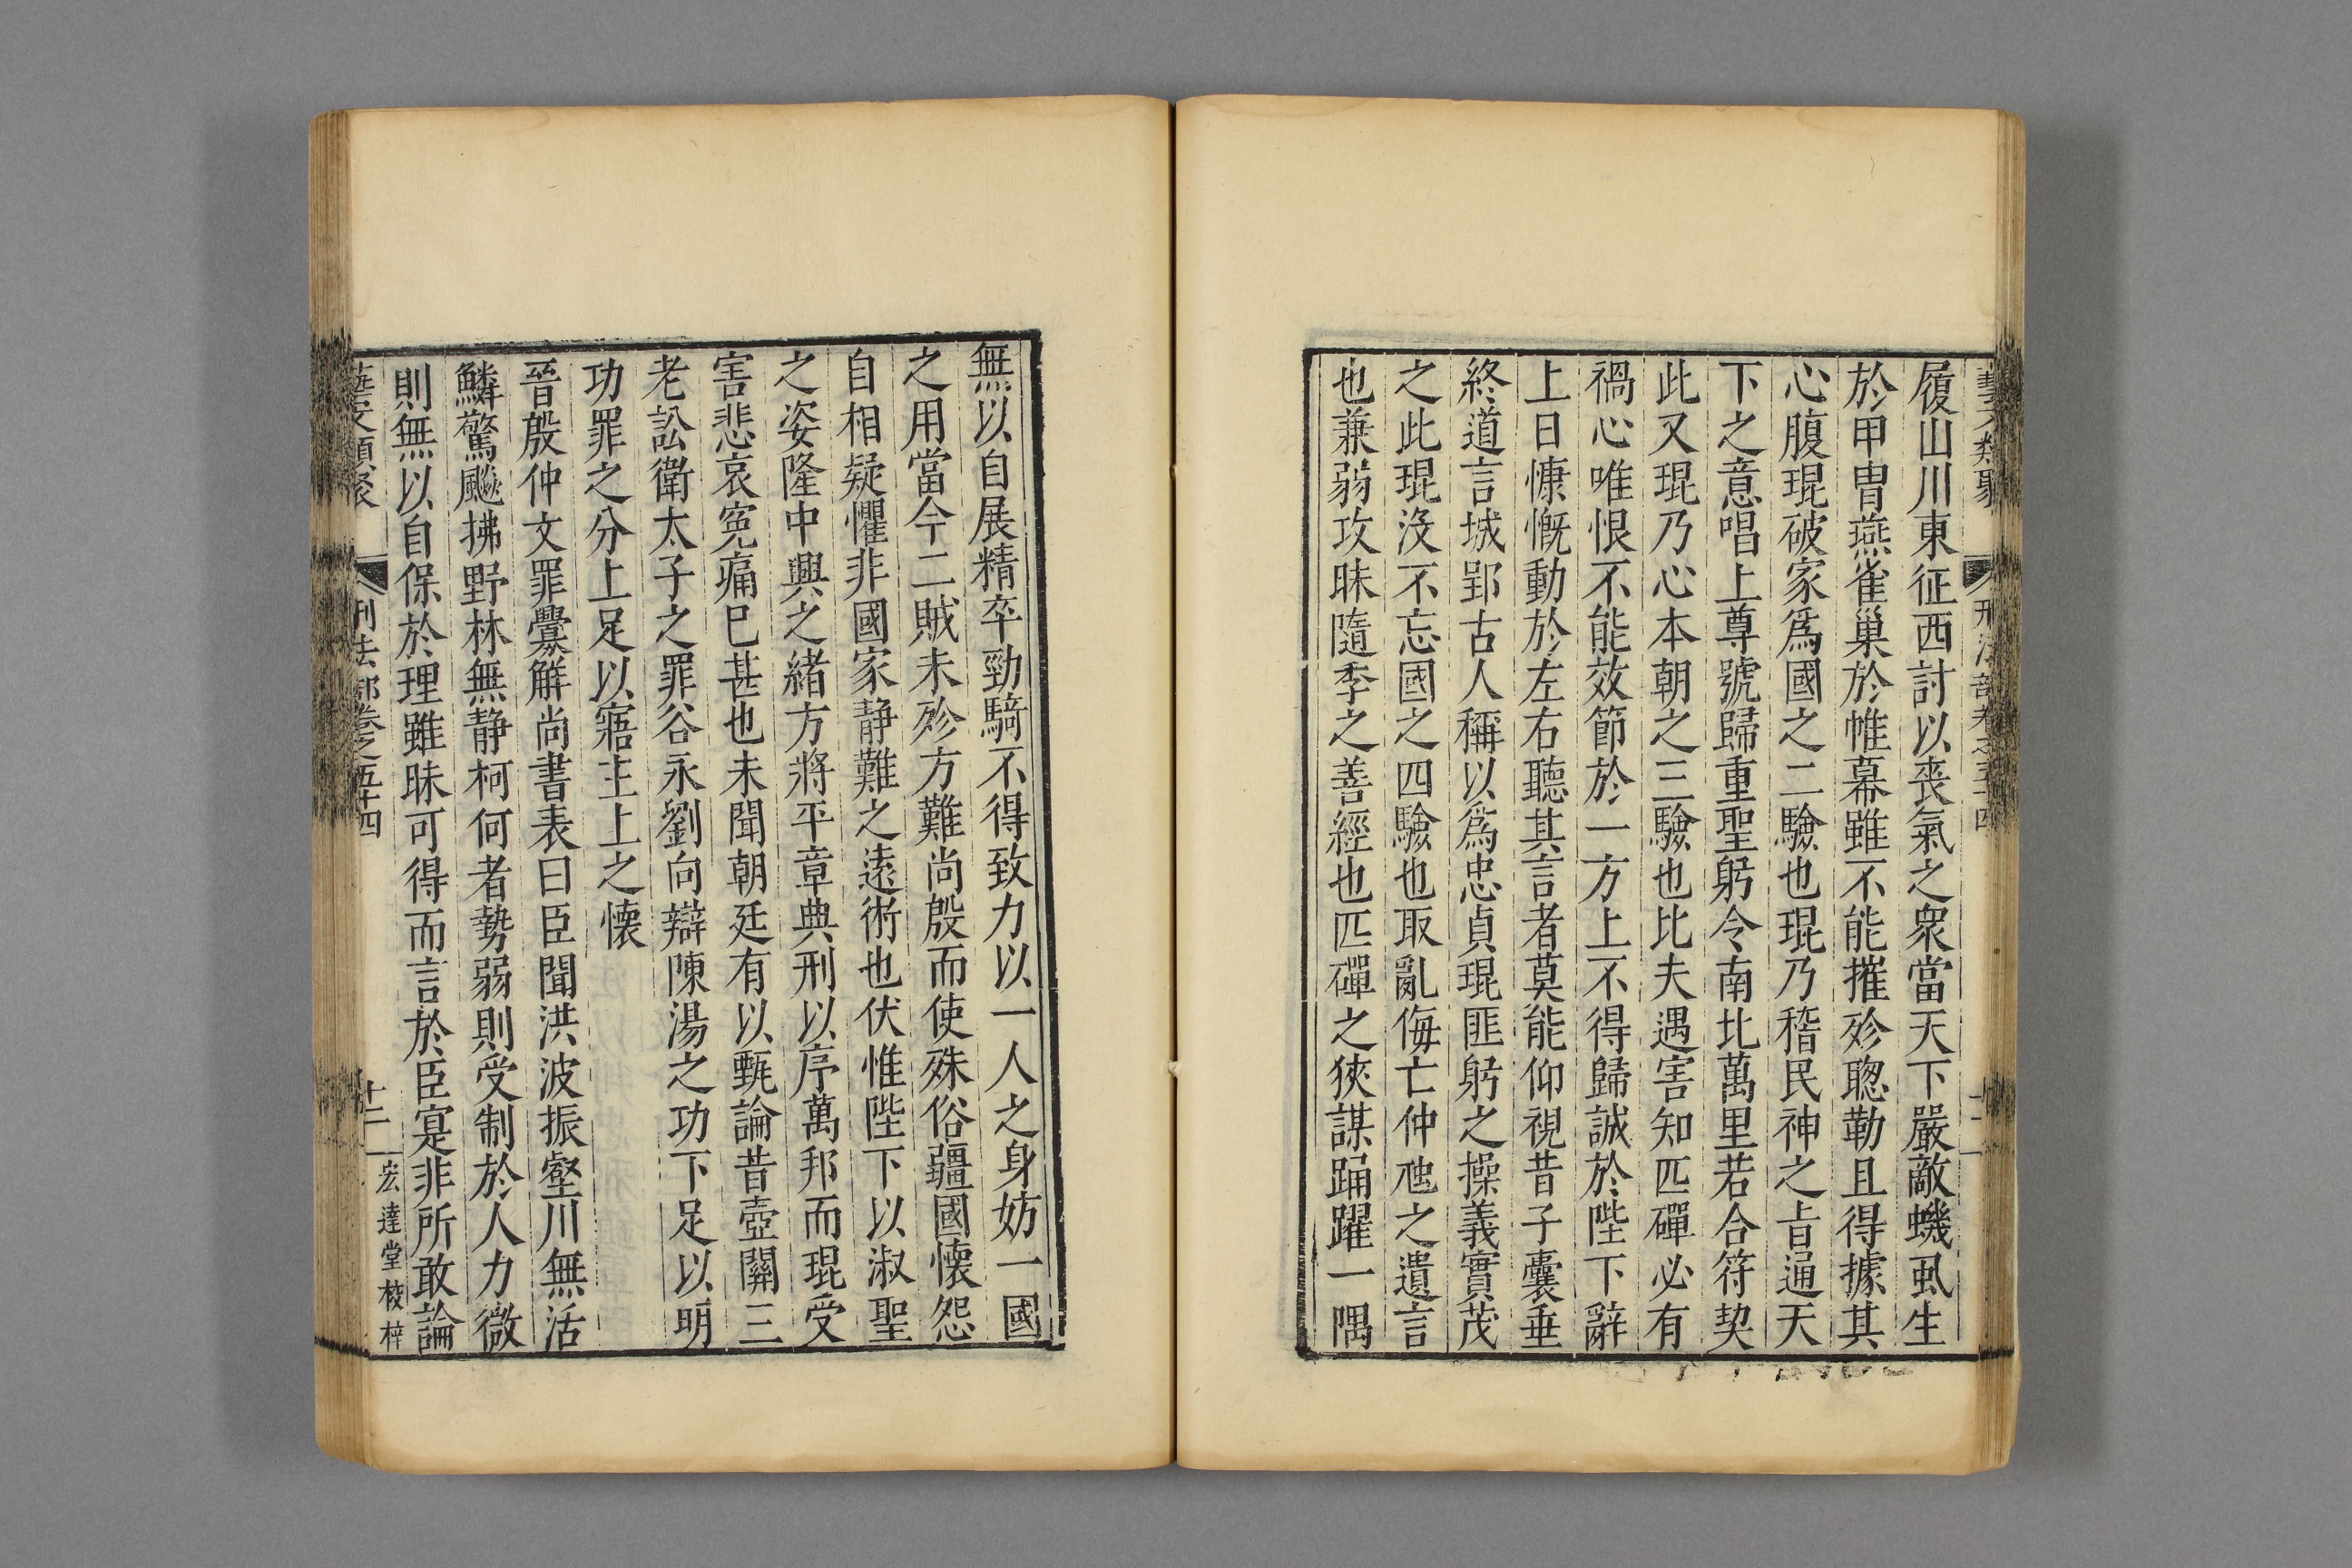 藝文類聚 刑法部卷之五十四
履山川東征西討以喪氣之衆當天下嚴敵蟣虱生
於甲冑燕雀巢於帷幕雖不能摧殄聰勒且得據其
心腹琨破家爲國之二驗也琨乃稽民神之旨通天
下之意唱上尊號歸重聖躬令南北萬里若合符契
此又琨乃心本朝之三驗也比夫遇害知匹磾必有
禍心唯恨不能效節於一方上不得歸誠於陛下辭
上日慷慨動於左右聽其言者莫能仰視昔子囊垂
終道言城郢古人稱以爲忠貞琨匪躬之操義實茂
之此琨沒不忘國之四驗也取亂侮亡仲虺之遺言
也兼弱攻昧隨季之善經也匹磾之狹謀踊躍一隅
無以自展精卒勁騎不得致力以一人之身妨一國
之用當今二賊未殄方難尚殷而使殊俗疆國懷怨
自相疑懼非國家靜難之遠術也伏惟陛下以淑聖
之姿隆中興之緒方將平章典刑以序萬邦而琨受
害悲哀寃痛巳甚也未聞朝廷有以甄論昔壺關三
老訟衛太子之罪谷永劉向辯陳湯之功下足以明
功罪之分上足以寤主上之懷
晉殷仲文罪釁解尚書表曰臣聞洪波振壑川無活
鱗驚飈拂野林無靜柯何者勢弱則受制於人力微
則無以自保於理雖昧可得而言於臣寔非所敢論
藝文類聚 刑法部卷之五十四 十二 宏達堂校梓